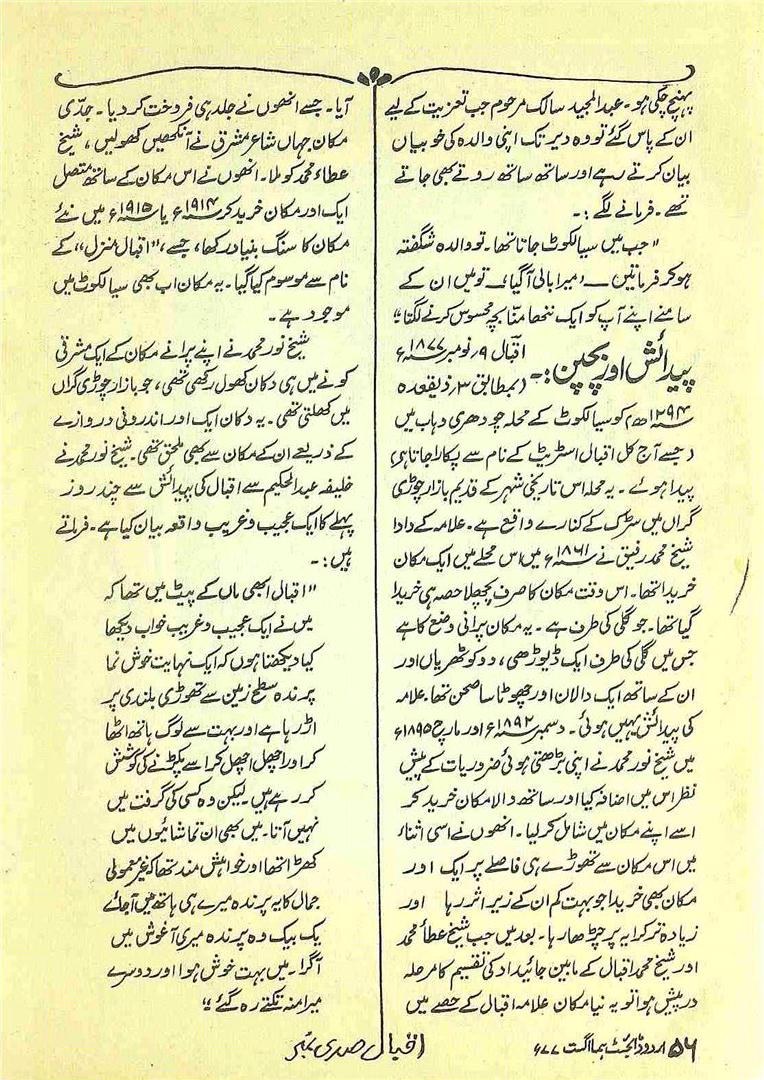 پہنچ چکی ہو۔ عبدالمجید سالک مرحوم جب تعزیت کے لیے
ان کے پاس گئے تو وہ دیر تک اپنی والدہ کی خوبیاں
بیان کرتے رہے اور ساتھ ساتھ روتے بھی جاتے
تھے۔ فرمانے لگے :۔
"جب میں سیالکوٹ جاتا تھا۔ تو والدہ شگفتہ
ہو کر فرماتیں ــــ 'میرا بالی آ گیا'، تو میں ان کے
سامنے اپنے آپ کو ایک ننھا منّا بچہ محسوس کرنے لگتا"
پیدائش اور بچپن :۔ اقبال ۹؍ نومبر ۱۸۷۷ء
(بمطابق ۳؍ ذیقعدہ
۱۲۹۴ھ) کو سیالکوٹ کے محلہ چودھری وہاب میں
(جسے آج کل اقبال اسٹریٹ کے نام سے پکارا جاتا ہی
پیدا ہوئے۔ یہ محلہ اس تاریخی شہر کے قدیم بازار چوڑی
گراں میں سڑک کے کنارے واقع ہے۔ علامہ کے دادا
شیخ محمد رفیق نے ۱۸۶۱ء میں اس محلے میں ایک مکان
خریدا تھا۔ اس وقت مکان کا صرف پچھلا حصہ ہی خریدا
گیا تھا۔ جو گلی کی طرف ہے۔ یہ مکان پرانی وضع کا ہے
جس میں گلی کی طرف ایک ڈیوڑھی، دو کوٹھریاں اور
ان کے ساتھ ایک دالان اور چھوٹا سا صحن تھا۔ علامہ
کی پیدائش یہیں ہوئی۔ دسمبر ۱۸۹۲ء اور مارچ ۱۸۹۵ء
میں شیخ نور محمد نے اپنی بڑھتی ہوئی ضروریات کے پیش
نظر اس میں اضافہ کیا اور ساتھ والا مکان خرید کر
اسے اپنے مکان میں شامل کر لیا۔ انھوں نے اسی اثناء
میں اس مکان سے تھوڑے ہی فاصلے پر ایک اور
مکان بھی خریدا جو بہت کم ان کے زیر اثر رہا اور
زیادہ تر کرایہ پر چڑھا رہا۔ بعد میں جب شیخ عطأ محمد
اور شیخ محمد اقبال کے مابین جائیداد کی تقسیم کا مرحلہ
درپیش ہوا تو یہ نیا مکان علامہ اقبال کے حصے میں
آیا۔ جسے انھوں نے جلد ہی فروخت کر دیا۔ جدّی
مکان جہاں شاعرِ مشرق نے آنکھیں کھولیں، شیخ
عطاء محمد کو ملا۔ انھوں نے اس مکان کے ساتھ متصل
ایک اور مکان خرید کر ۱۹۱۴ء یا ۱۹۱۵ء میں نئے
مکان کا سنگِ بنیاد رکھا، جسے، "اقبال منزل" کے
نام سے موسوم کیا گیا۔ یہ مکان اب بھی سیالکوٹ میں
موجود ہے۔
شیخ نور محمد نے اپنے پرانے مکان کے ایک مشرقی
کونے میں ہی دکان کھول رکھی تھی، جو بازار چوڑی گراں
میں کھلتی تھی۔ یہ دکان ایک اور اندرونی دروازے
کے ذریعے ان کے مکان سے بھی ملحق تھی۔ شیخ نور محمد نے
خلیفہ عبدالحکیم سے اقبال کی پیدائش سے چند روز
پہلے کا ایک عجیب و غریب واقعہ بیان کیا ہے۔ فرماتے
ہیں :۔
"اقبال ابھی ماں کے پیٹ میں تھا کہ
میں نے ایک عجیب و غریب خواب دیکھا
کیا دیکھتا ہوں کہ ایک نہایت خوش نما
پرندہ سطح زمین سے تھوڑی بلندی پر
اڑ رہا ہے اور بہت سے لوگ ہاتھ اٹھا
کر اور اچھل اچھل کر اسے پکڑنے کی کوشش
کر رہے ہیں۔ لیکن وہ کسی کی گرفت میں
نہیں آتا۔ میں بھی ان تماشائیوں میں
کھڑا تھا اور خواہش مند تھا کہ غیر معمولی
جمال کا یہ پرندہ میرے ہی ہاتھ میں آ جائے
یک بیک وہ پرندہ میری آغوش میں
آ گرا۔ میں بہت خوش ہوا اور دوسرے
میرا منہ تکتے رہ گئے"
۵۶ اردو ڈائجسٹ ہما اگست ۷۷ء
اقبال صدی نمبر